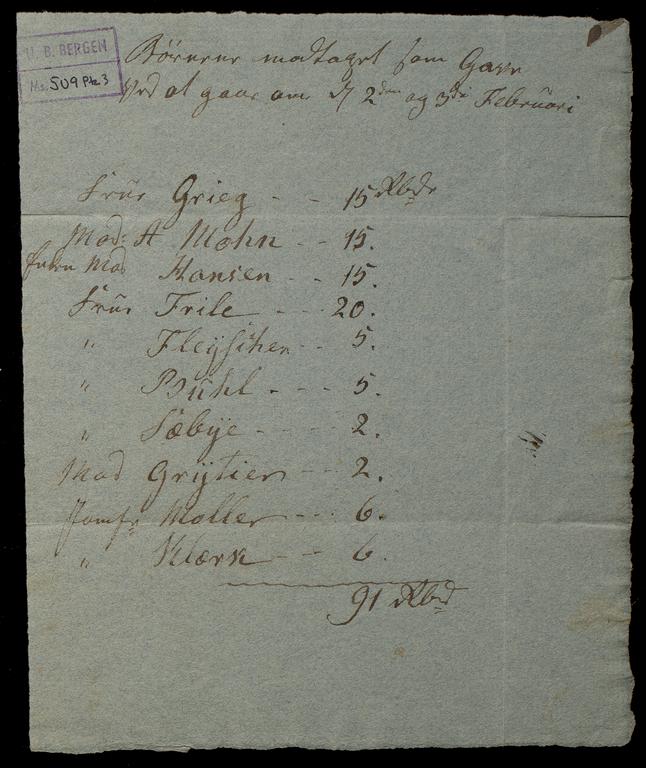 U. B. BERGEN
Ms. 509 Pk 3
Börnene modtaget som Gave
Ved at gaae om d 2den og 3die Februari
Frue Grieg - - 15 Rbdr
Mad: A Mohn - - 15.
Enken Mad Hansen - - 15.
Frue Friele - - - 20.
" Fleyscher - - 5.
" Buhl - - - - 5.
" Sæbye - - - - 2.
Mad Grytier - - - 2.
Jomfr Moller - - - 6.
" Klærk - - - 6.
91 Rbd